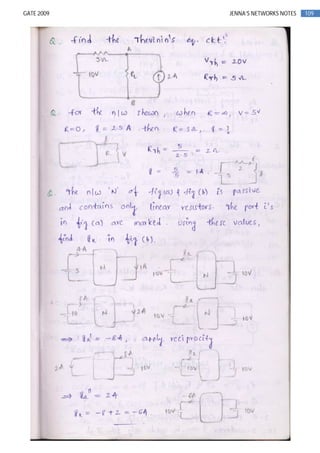 GATE 2009 JENNA'S NETWORKS NOTES 109
Q. find the Thevinin's eq. ckt:
A
5Ω
10V
RL
2A
B
VTh = 20V
RTh = 5Ω
Q. for the n/w shown, when R=∞, V=5V
R=0, I = 2.5A then R=3Ω, I = ?
RTh = 5/2.5 = 2Ω
R V
I = 5/5 = 1A
5 2 3
Q. The n/w 'N' of fig(a) & fig(b) is passive
and contains only linear resistors. The port i's
in fig(a) are marked. Using these values,
find Ix in fig(b).
4A
5 N 1A
Ix
10V N 10V
10 N 2A
10V
N 10V
⇒ Ix' = -8A, apply reciprocity
2A 10V
10V 10V
⇒ Ix'' = 2A
Ix = -8+2 = -6A
-6A
10V 10V